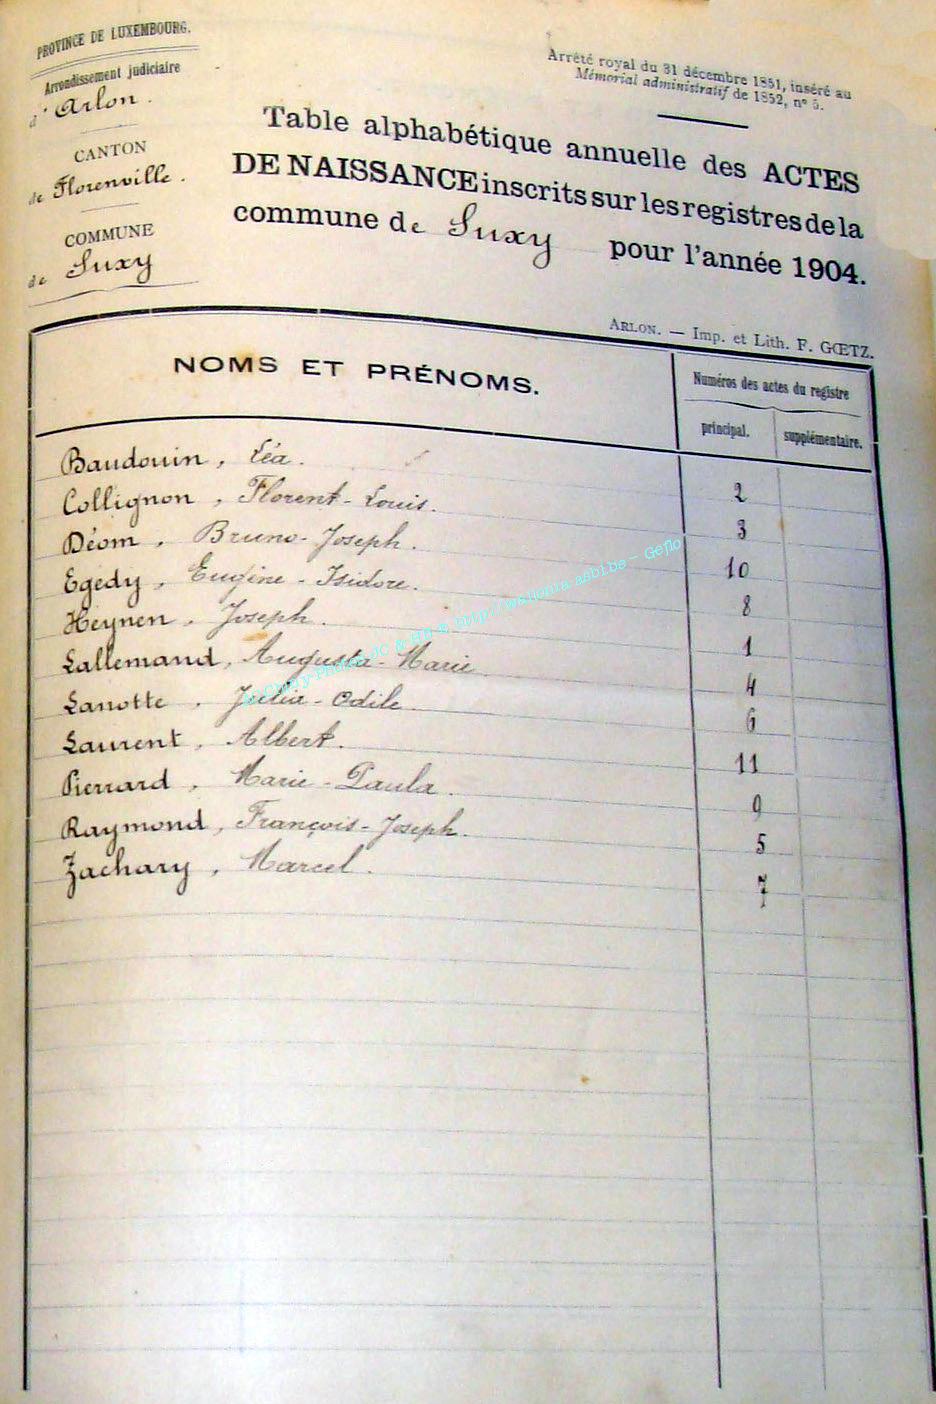 PROVINCE DE LUXEMBOURG.
Arrondissement judiciaire
d'Arlon.
CANTON
de Florenville.
COMMUNE
de Suxy
Arrêté royal du 31 décembre 1851, inséré au
Mémorial administratif de 1852, n° 5.
Table alphabétique annuelle des ACTES
DE NAISSANCE inscrits sur les registres de la
commune de Suxy pour l'année 1904.
ARLON. — Imp. et Lith. F. GŒTZ.
NOMS ET PRÉNOMS.
Numéros des actes du registre
principal. supplémentaire.
Baudouin, Léa. 2
Collignon, Florent-Louis. 3
Déom, Bruno-Joseph. 10
Egedy, Eugène-Isidore. 8
Heynen, Joseph. 1
Lallemand, Augusta-Marie. 4
Lanotte, Julia-Odile. 6
Laurent, Albert. 11
Pierrard, Marie-Paula. 9
Raymond, François-Joseph. 5
Zachary, Marcel. 7
http://wallonia.asbl.be - Geflo